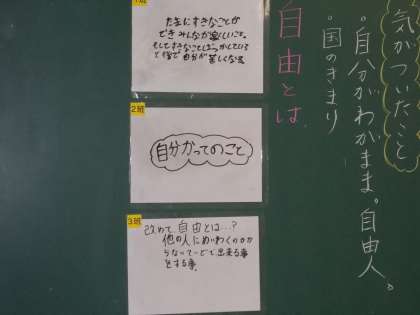 気がついたこと
・自分がわがまま。自由人。
・国のきまり
自由とは
1班
たまにすきなことが
できみんなが楽しいこと。
そしてすきなことばっかしている
と後で自分が苦しくなる
2班
自分かってのこと
3班
改めて自由とは…?
他の人にめいわくのかか
らないていどで出来る事
をする事